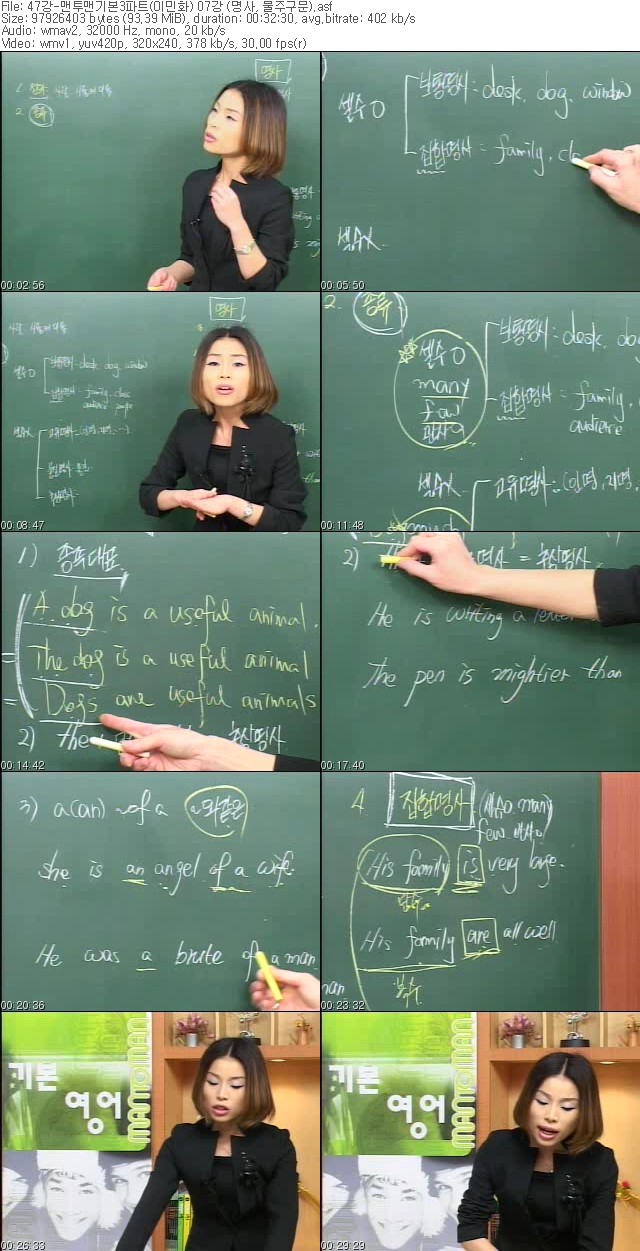 File: 47강-맨투맨기본3파트(이민화) 07강 (명사, 물주구문).asf
Size: 97926403 bytes (93,39 MiB), duration: 00:32:30, avg,bitrate: 402 kb/s
Audio: wmav2, 32000 Hz, mono, 20 kb/s
Video: wmv1, yuv420p, 320x240, 378 kb/s, 30,00 fps(r)
명사
1.
2. 종류
00:02:56
셀수O
보통명사: desk. dog. window
집합명사 = family, cla
셀수X.
00:05:50
명사
셀수O
보통명사 - desk. dog. window
집합명사 - family. class
audience people
셀수X
고유명사
00:08:47
2. 종류
셀수O
many
few
보통명사: desk, do
집합명사 = family,
audience
셀수X
고유명사:
much
00:11:48
1) 종족대표
A dog is a useful animal.
= The dog is a useful animal
= Dogs are useful animals
2) the 추상명사
00:14:42
2) 명사 = 추상명사
He is writing a letter
The pen is mightier than
00:17:40
3) a(an) ~of a ~와같은
She is an angel of a wife.
He was a brute of a man
00:20:36
4. 집합명사 (셀수O. many
few
His family is very large.
단수
His family are all well
복수
man
00:23:32
기본
영어
MANTOMAN
00:26:33
기본
영어
MANTOMAN
00:29:29